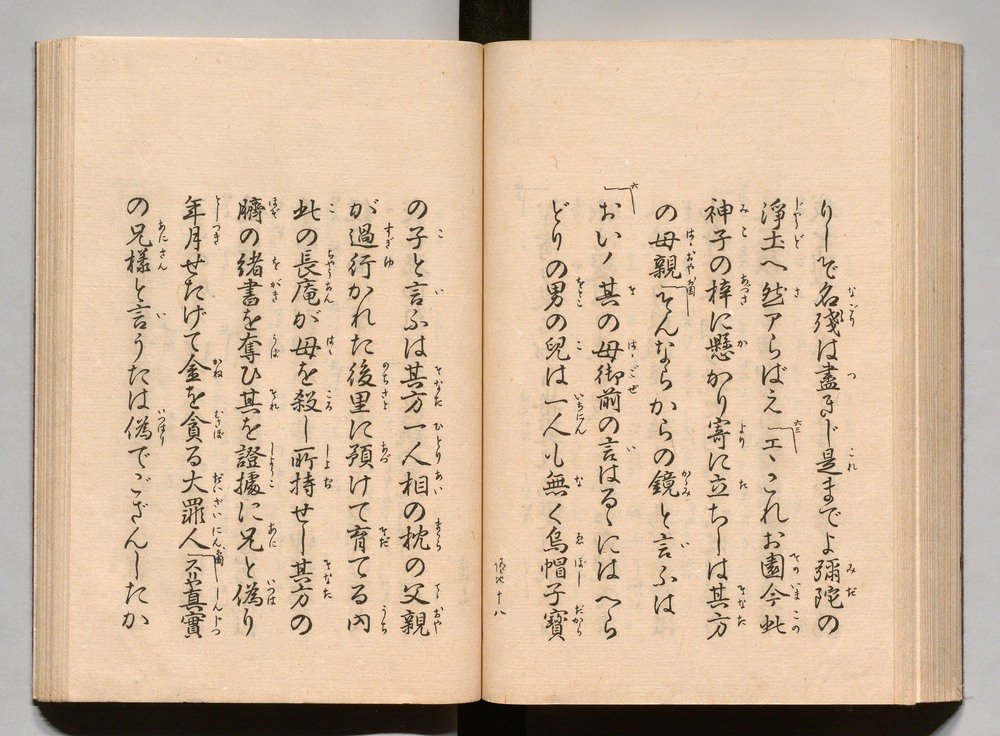 りしで名殘は盡きじ是までよ彌陀の
淨土へ然アらばえ「エヽこれお園今此
神子の梓に懸かり寄に立ちしは其方
の母親「そんならからの鏡と言ふは
おいノ其の母御前の言はるゝにはへら
どりの男の兒は一人も無く烏帽子寶
の子と言ふは其方一人相の枕の父親
が過行かれた後里に預けて育てる内
此の長庵が母を殺し所持せし其方の
臍の緒書を奪ひ其を證據に兄と僞り
年月せたげて金を貪る大罪人「スリや眞實
の兄樣と言うたは僞でござんしたか